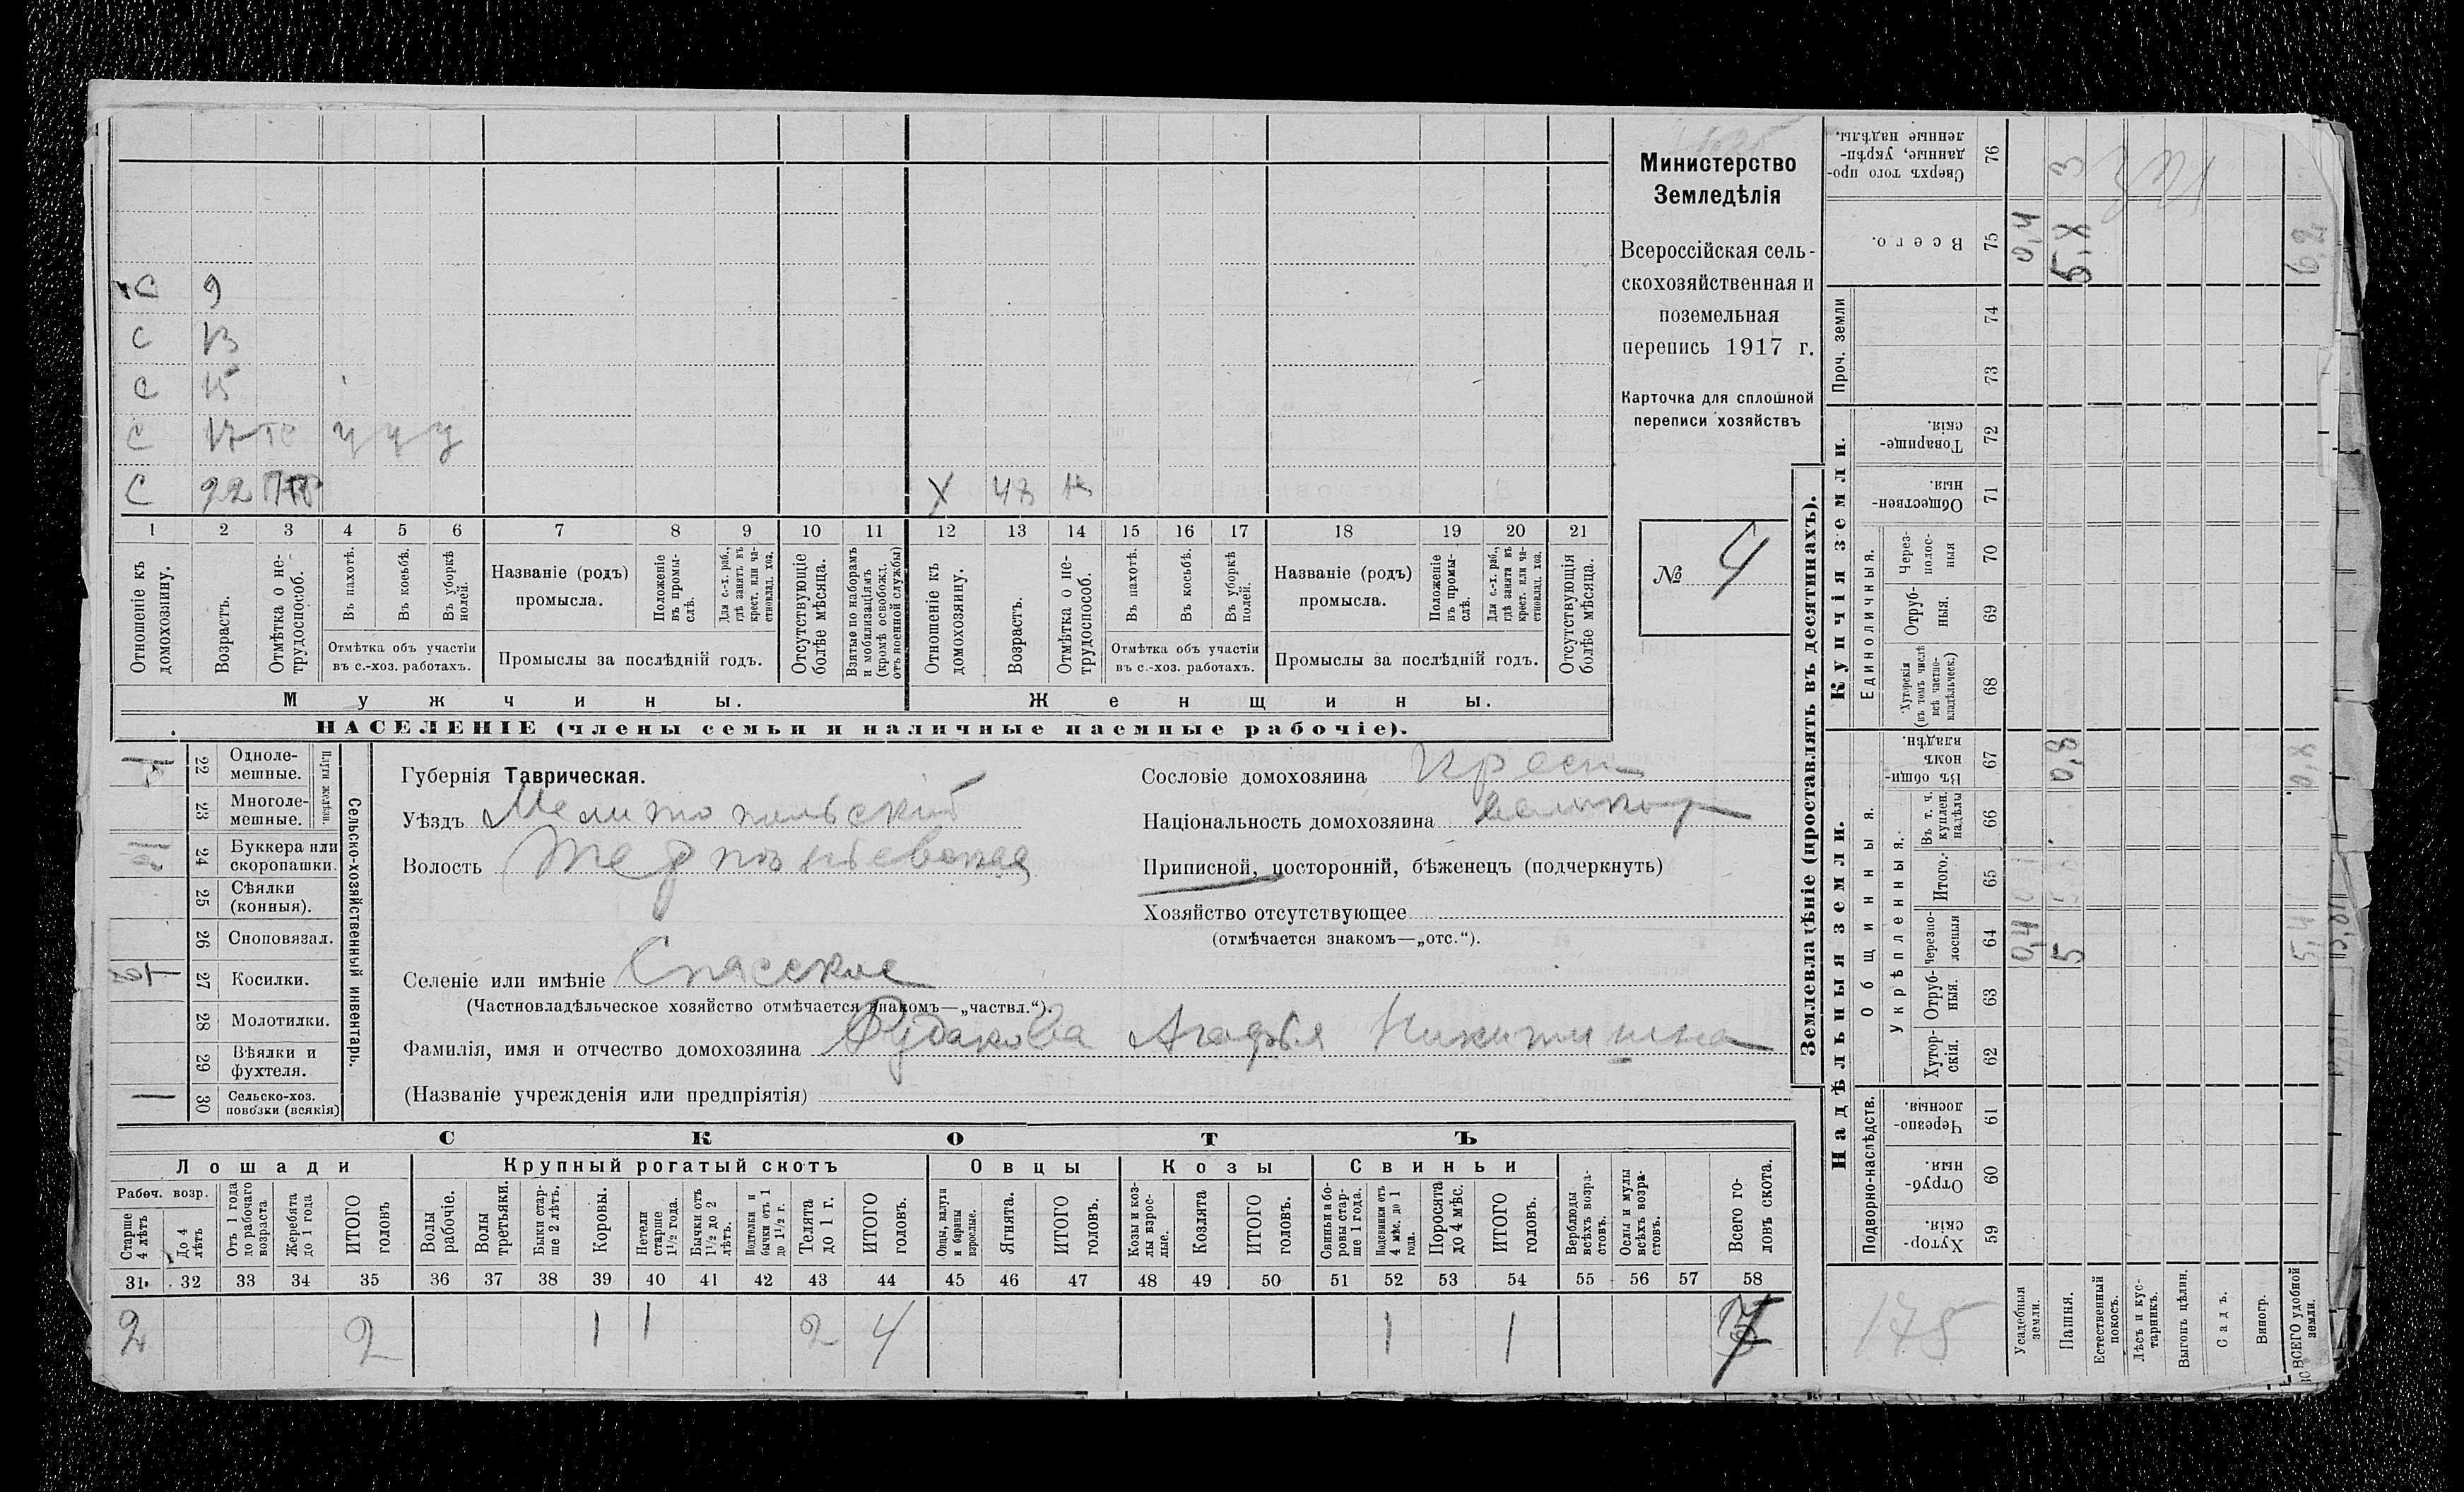 С 9
С 13
С 15
С 17 у у у
С 22 Х 48
1 2 3 4 5 6 7 8 9 10 11 12 13 14 15 16 17 18 19 20 21
Отношеніе къ домохозяину.
Возрастъ.
Отмѣтка о не-
трудоспособ.
Въ пахотѣ.
Въ косьбѣ.
Въ уборкѣ полей.
Отмѣтка объ участіи
въ с.-хоз. работахъ.
Названіе (родъ)
промысла.
Положеніе въ промы-
слѣ.
Для с.-х. раб., гдѣ занятъ въ крест. или ча-
стновлад. хоз.
Промыслы за послѣдній годъ.
Отсутствующіе болѣе мѣсяца.
Взятые по наборамъ и мобилизаціямъ (кромѣ освобожд. отъ военной службы)
Отношеніе къ домохозяину.
Возрастъ.
Отмѣтка о не-
трудоспособ.
Въ пахотѣ.
Въ косьбѣ.
Въ уборкѣ полей.
Отмѣтка объ участіи
въ с.-хоз. работахъ.
Названіе (родъ)
промысла.
Положеніе въ промы-
слѣ.
Для с.-х. раб., гдѣ занята въ крест. или ча-
стновлад. хоз.
Промыслы за послѣдній годъ.
Отсутствующія болѣе мѣсяца.
Мужчины. Женщины.
НАСЕЛЕНІЕ (члены семьи и наличные наемные рабочіе).
Министерство
Земледѣлія
Всероссійская сель-
скохозяйственная и
поземельная
перепись 1917 г.
Карточка для сплошной
переписи хозяйствъ
№ 4
Сельско-хозяйственный инвентарь.
Плуги желѣзн.
22 Одноле-
мешные.
23 Многоле-
мешные.
24 Буккера или
скоропашки.
25 Сѣялки
(конныя).
26 Сноповязал.
27 Косилки.
28 Молотилки.
29 Вѣялки и
фухтеля.
1 30 Сельско-хоз.
повозки (всякія)
Губернія Таврическая.
Уѣздъ Мелитопольскій
Волость Терпѣньевская
Селеніе или имѣніе Спасское
(Частновладѣльческое хозяйство отмѣчается знакомъ—„частвл.“).
Фамилія, имя и отчество домохозяина Рудакова Агафья Никитишна
(Названіе учрежденія или предпріятія)
Сословіе домохозяина Крест
Національность домохозяина
Приписной, посторонній, бѣженецъ (подчеркнуть)
Хозяйство отсутствующее
(отмѣчается знакомъ—„отс.“).
СКОТЪ
Лошади
Рабоч. возр.
Старше 4 лѣтъ
До 4 лѣтъ
Отъ 1 года до рабочаго возраста
Жеребята до 1 года
ИТОГО головъ
Крупный рогатый скотъ
Волы рабочіе.
Волы третьяки.
Быки стар-
ше 2 лѣтъ.
Коровы.
Нетели старше 1½ года.
Бычки отъ 1½ до 2 лѣтъ.
Подтелки и бычки отъ 1 до 1½ г.
Телята до 1 г.
ИТОГО головъ.
Овцы
Овцы, валухи и бараны взрослые.
Ягнята.
ИТОГО головъ.
Козы
Козы и коз-
лы взрос-
лые.
Козлята
ИТОГО головъ.
Свиньи
Свиньи и бо-
ровы стар-
ше 1 года.
Подсвинки отъ 4 мѣс. до 1 года.
Поросята до 4 мѣс.
ИТОГО головъ.
Верблюды всѣхъ возра-
стовъ.
Ослы и мулы всѣхъ возра-
стовъ.
Всего го-
ловъ скота.
31 32 33 34 35 36 37 38 39 40 41 42 43 44 45 46 47 48 49 50 51 52 53 54 55 56 57 58
2 2 1 1 2 4 1 1 7
Землевладѣніе (проставлять въ десятинахъ).
Надѣльныя земли.
Подворно-наслѣдств.
Хутор-
скія. 59
Отруб-
ныя. 60
Черезпо-
лосныя. 61
Общинныя.
Укрѣпленныя.
Хутор-
скія. 62
Отруб-
ныя. 63
Черезпо-
лосныя 64
Итого. 65
Въ т. ч. куплен. надѣлы 66
Въ общи-
номъ владѣн. 67
Купчія земли.
Единоличныя.
Хуторскія (въ томъ числѣ всѣ частно-
владѣльческ.) 68
Отруб-
ныя. 69
Через-
полос-
ныя 70
Обществен-
ныя. 71
Товарище-
скія. 72
Проч. земли
73 74
Всего. 75
Сверхъ того про-
данные, укрѣп-
ленные надѣлы. 76
175
Усадебныя земли. 0,4 0,4
Пашня. 5 0,8 5,8 3
Естественный покосъ.
Лѣсъ и кус-
тарникъ.
Выгонъ цѣлин.
Садъ.
Виногр.
ВСЕГО удобной земли. 5,4 0,8 6,2